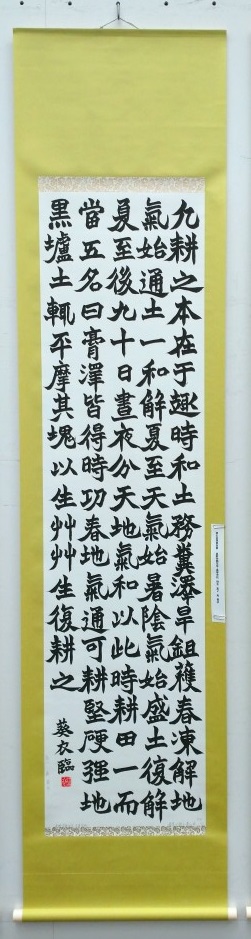 凡耕之本在于趣時和土務糞澤旱鉏穫春凍解地
氣始通土一和解夏至天氣始暑陰氣始盛土復解
夏至後九十日晝夜分天地氣和以此時耕田一而
當五名曰膏澤皆得時功春地氣通可耕堅硬强地
黑壚土輒平摩其塊以生艸艸生復耕之
葵衣臨